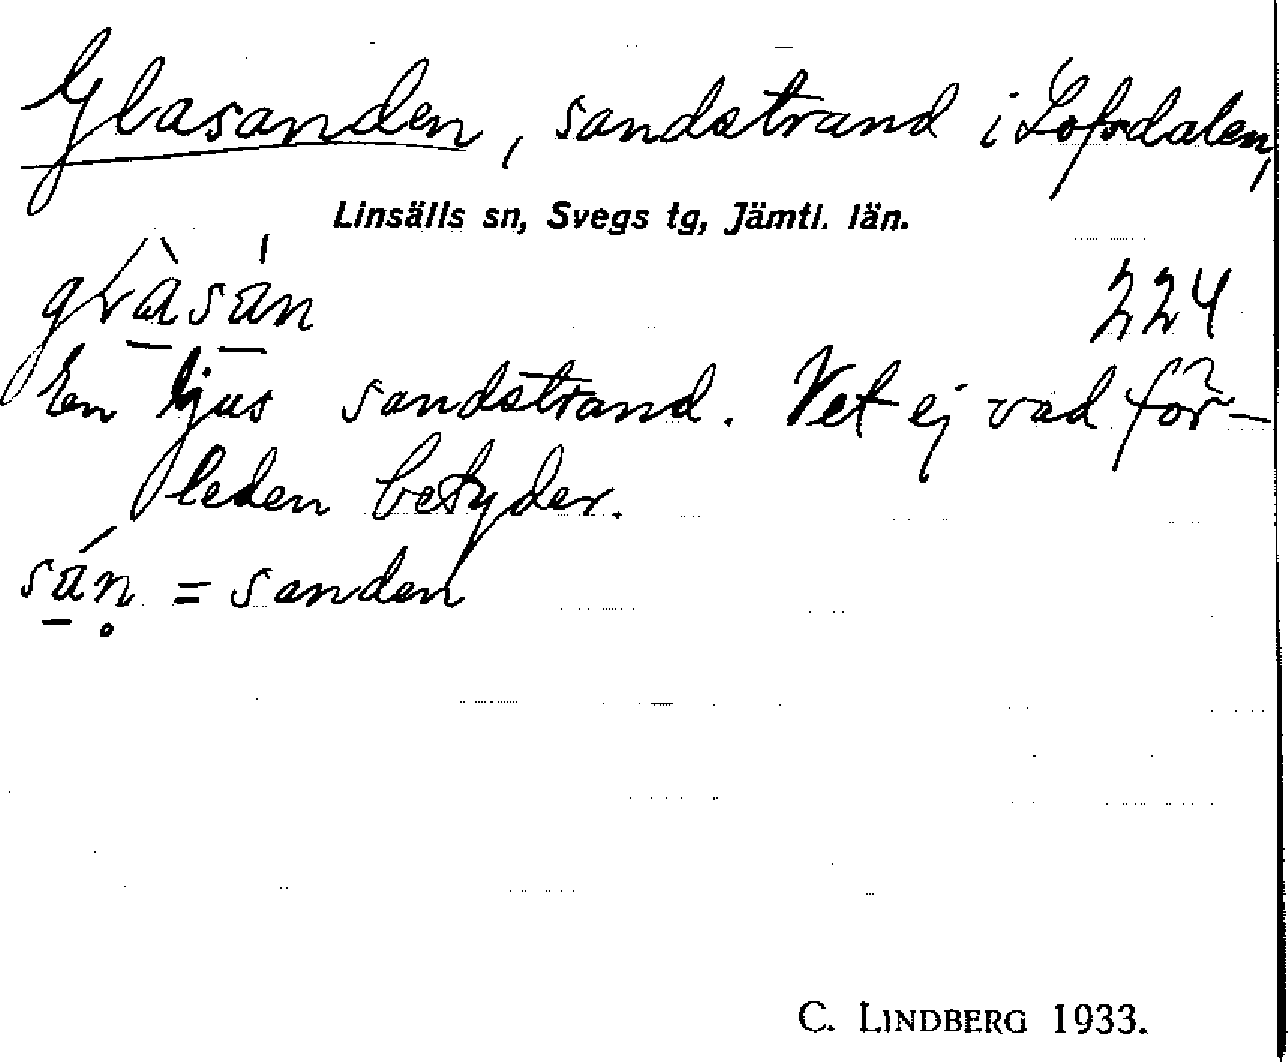 Glasanden, sandstrand i Lofsdalen,
Linsälls sn, Svegs tg, Jämtl. län.
glàsán 224
En ljus sandstrand. Vet ej vad för-
leden betyder.
sán̥ = sanden
C. LINDBERG 1933.